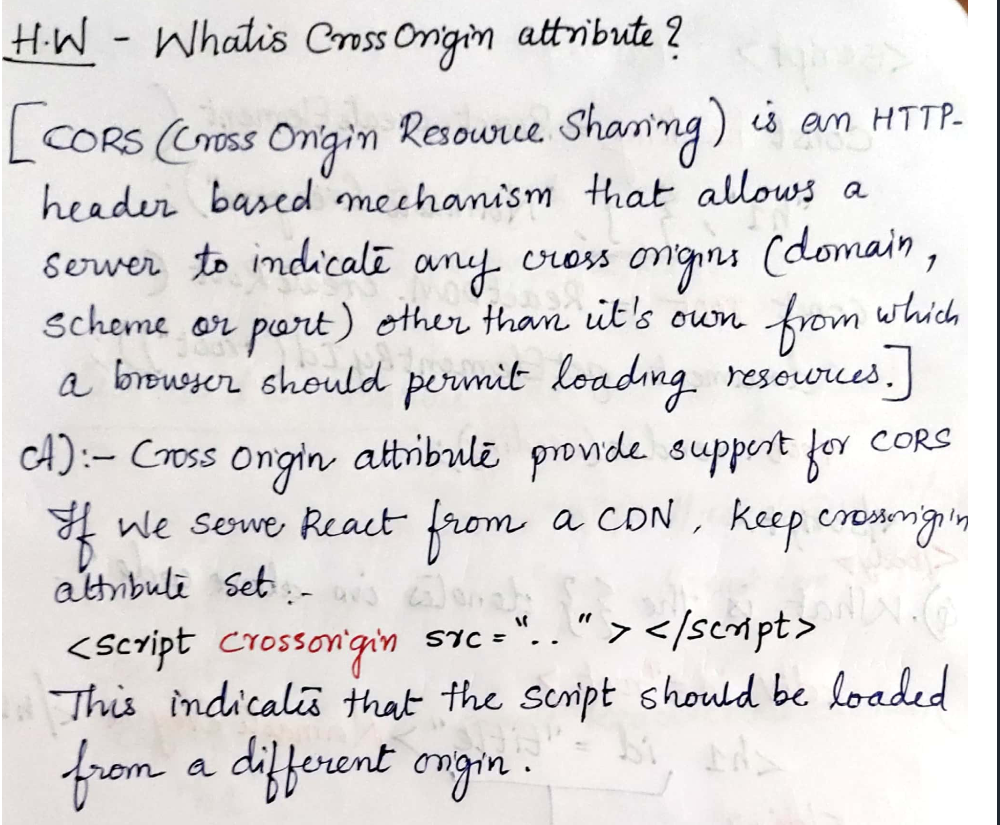 H.W - What is Cross Origin attribute?
[CORS (Cross Origin Resource Sharing) is an HTTP-
header based mechanism that allows a
server to indicate any cross origins (domain,
scheme or port) other than it's own from which
a browser should permit loading resources.]
A):- Cross Origin attribute provide support for CORS
If We serve React from a CDN, keep crossorigin
attribute set:-
<script crossorigin src=".."></script>
This indicates that the script should be loaded
from a different origin.